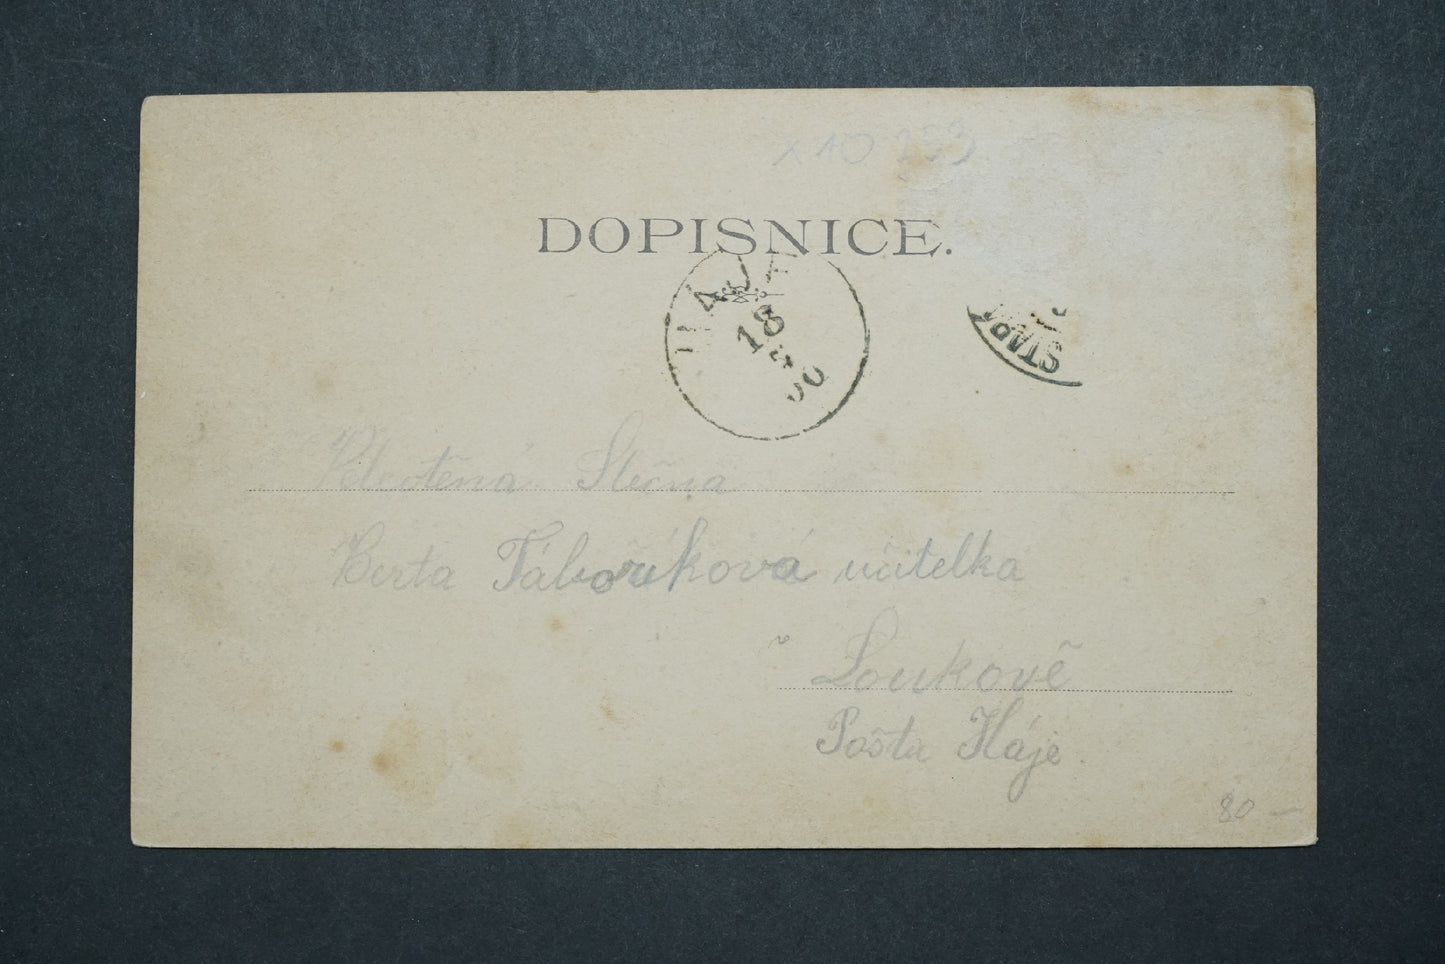 DOPISNICE.
18
5
STAR
Velectěná Slečna
Berta Táboříková učitelka
v Loukově
Pošta Háje
80 —